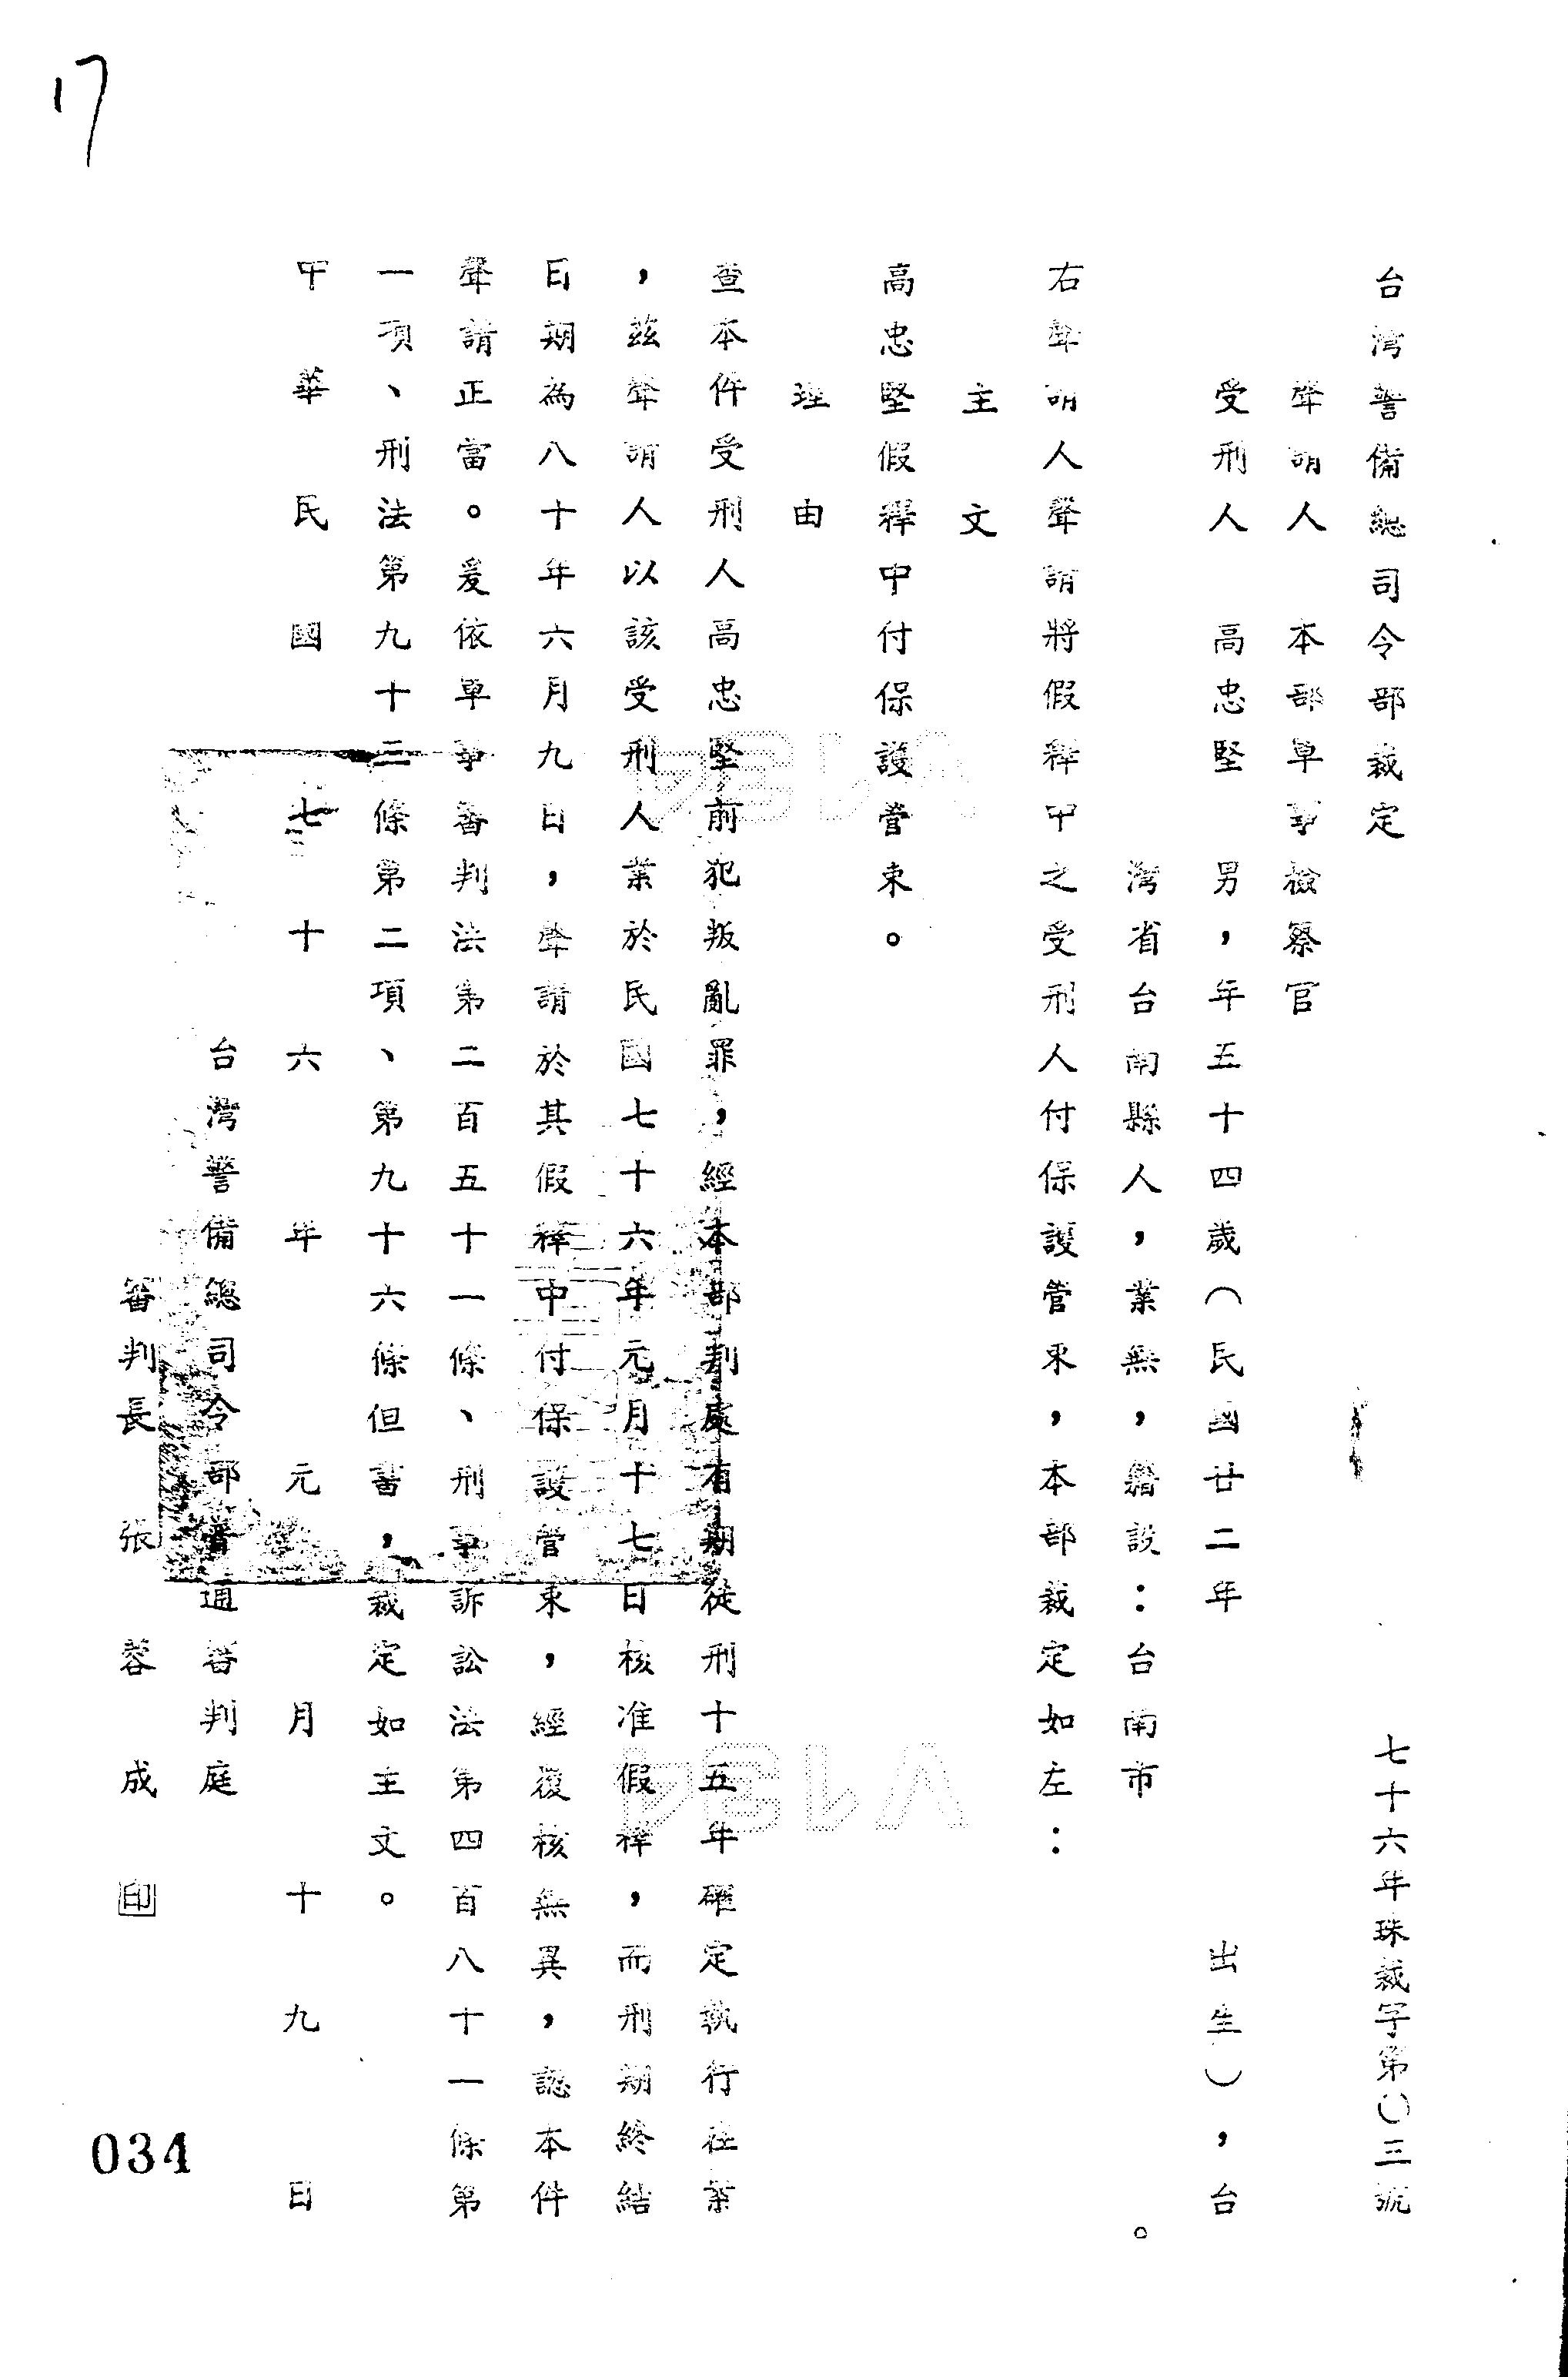 17
台灣警備總司令部裁定　七十六年珠裁字第〇三號
聲請人　本部軍事檢察官
受刑人　高忠堅　男，年五十四歲（民國廿二年　出生），台
灣省台南縣人，業無，籍設：台南市　。
右聲請人聲請將假釋中之受刑人付保護管束，本部裁定如左：
主　文
高忠堅假釋中付保護管束。
理　由
查本件受刑人高忠堅前犯叛亂罪，經本部判處有期徒刑十五年確定執行在案
，茲聲請人以該受刑人業於民國七十六年元月十七日核准假釋，而刑期終結
日期為八十年六月九日，聲請於其假釋中付保護管束，經覆核無異，認本件
聲請正當。爰依軍事審判法第二百五十一條、刑事訴訟法第四百八十一條第
一項、刑法第九十三條第二項、第九十六條但書，裁定如主文。
中華民國七十六年元月十九日
台灣警備總司令部普通審判庭
審判長　張蓉成　印
034
V134
V134